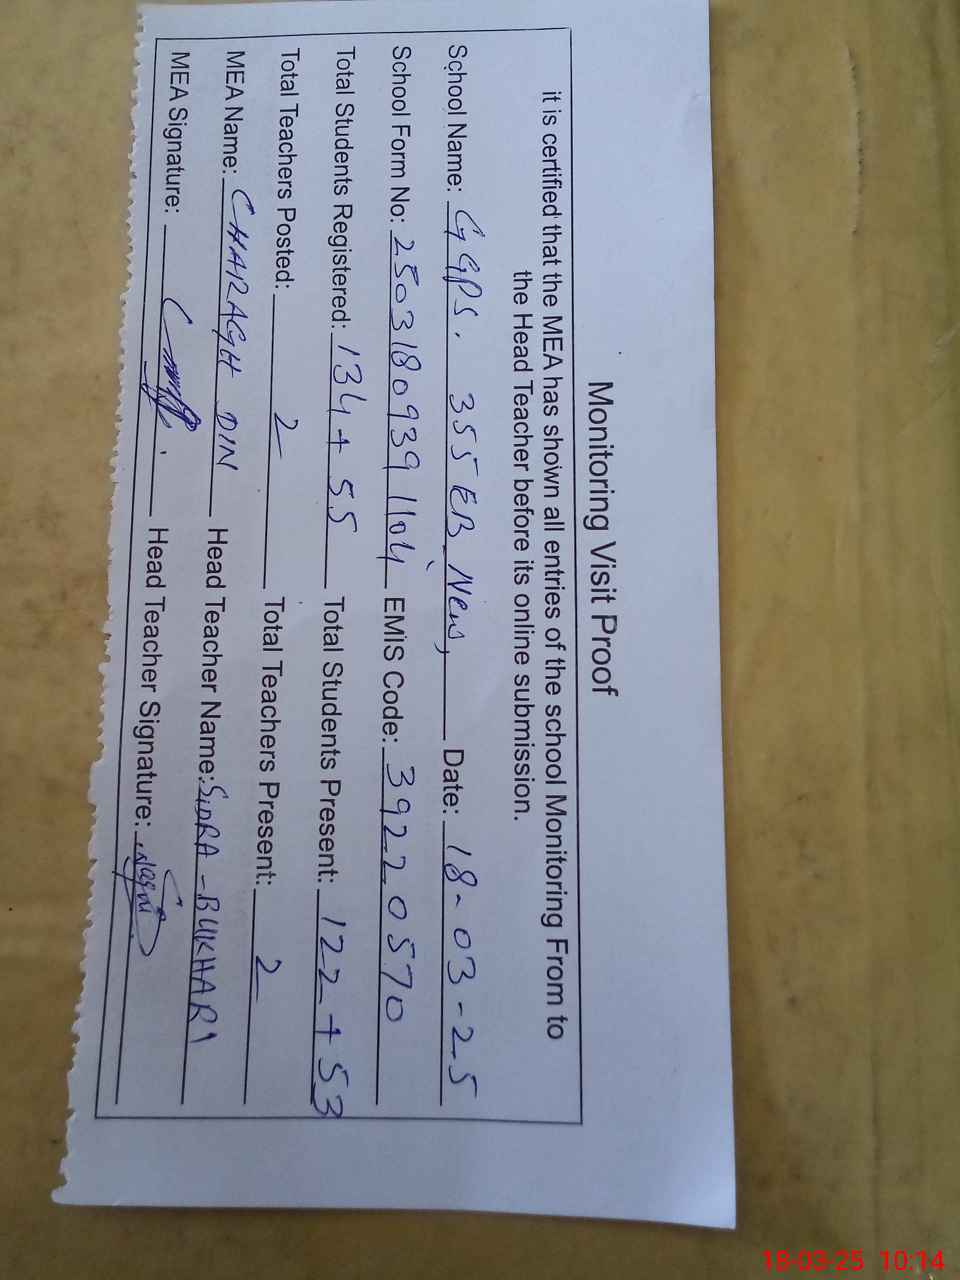 Monitoring Visit Proof
it is certified that the MEA has shown all entries of the school Monitoring From to
the Head Teacher before its online submission.
School Name: GGPS. 355 EB New, Date: 18-03-25
School Form No: 25031809391104 EMIS Code: 39220570
Total Students Registered: 134+55 Total Students Present: 122+53
Total Teachers Posted: 2 Total Teachers Present: 2
MEA Name: CHARAGH DIN Head Teacher Name: SIDRA-BUKHARI
MEA Signature: Head Teacher Signature:
18-03-25 10:14